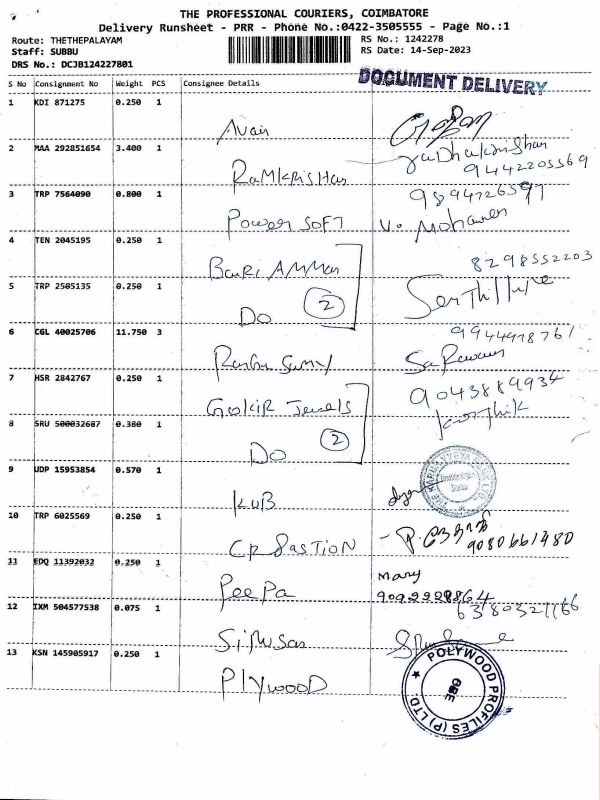 THE PROFESSIONAL COURIERS, COIMBATORE
Delivery Runsheet - PRR - Phone No.:0422-3505555 - Page No.:1
Route: THETHEPALAYAM
RS No.: 1242278
Staff: SUBBU
RS Date: 14-Sep-2023
DRS No.: DCJB124227801
DOCUMENT DELIVERY
S No Consignment No Weight PCS Consignee Details
1 KDI 871275 0.250 1
2 MAA 292851654 3.400 1
RamKrisHan
9442205569
3 TRP 7564090 0.800 1
9894726597
Power Soft V. Mohanan
4 TEN 2045195 0.250 1
8298552203
5 TRP 2505135 0.250 1
Do 2
6 CGL 40025706 11.750 3
9944918761
7 HSR 2842767 0.250 1
9043889934
Jewels Karthik
8 SRU 500032687 0.380 1
Do 2
9 UDP 15953854 0.570 1
KUB
10 TRP 6025569 0.250 1
9080661480
11 EDQ 11392032 0.250 1
Mary
PeePa
9092228864
12 IXM 504577538 0.075 1
13 KSN 145905917 0.250 1
PlywooD
POLYWOOD PROFILES (P) LTD.
CBE